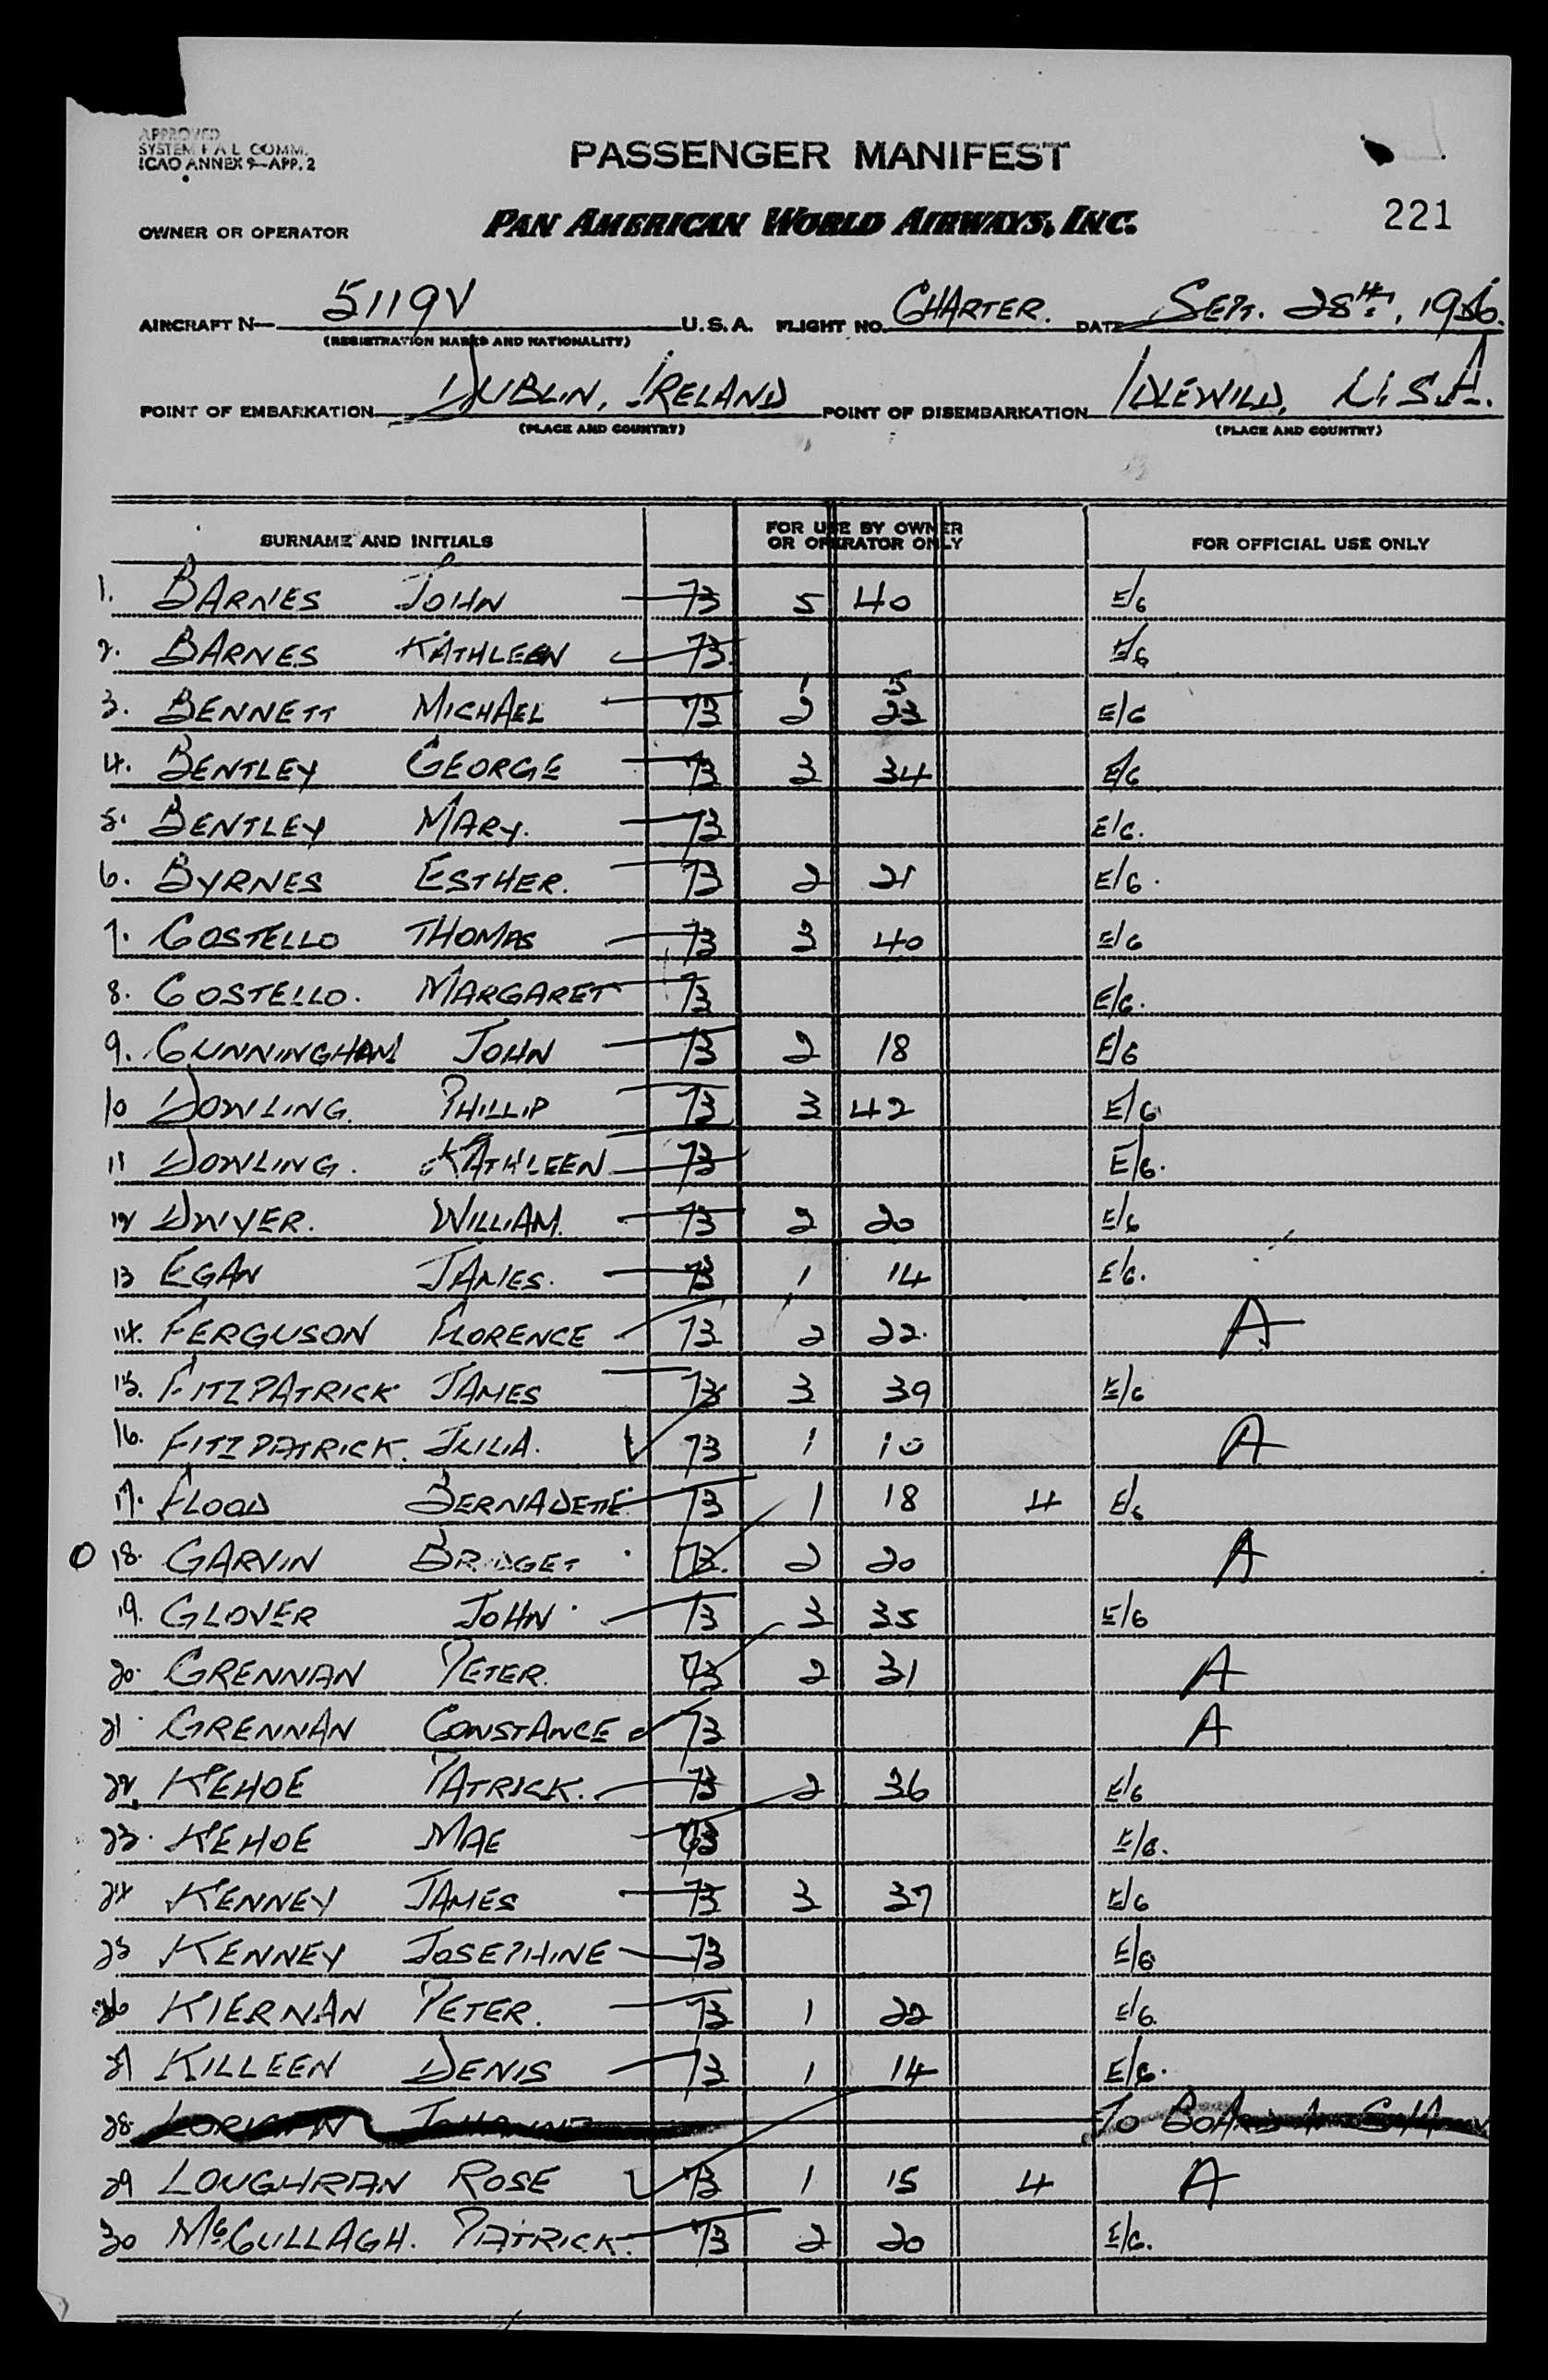 APPROVED
SYSTEM F A L COMM.
ICAO ANNEX 9-APP. 2
PASSENGER MANIFEST
OWNER OR OPERATOR PAN AMERICAN WORLD AIRWAYS, INC. 221
AIRCRAFT N- 5119V U.S.A. FLIGHT NO. CHARTER. DATE SEPT. 28TH, 1956.
(REGISTRATION MARKS AND NATIONALITY)
POINT OF EMBARKATION DUBLIN, IRELAND POINT OF DISEMBARKATION IDLEWILD, U.S.A.
(PLACE AND COUNTRY) (PLACE AND COUNTRY)
SURNAME AND INITIALS FOR USE BY OWNER OR OPERATOR ONLY FOR OFFICIAL USE ONLY
1. BARNES JOHN 73 5 40 E/G
2. BARNES KATHLEEN 73 E/G
3. BENNETT MICHAEL 73 2 23 E/G
4. BENTLEY GEORGE 73 3 34 E/G
5. BENTLEY MARY. 73 E/G.
6. BYRNES ESTHER. 73 2 21 E/G.
7. COSTELLO THOMAS 73 3 40 E/G
8. COSTELLO. MARGARET 73 E/G.
9. CUNNINGHAM JOHN 73 2 18 E/G
10 DOWLING. PHILLIP 73 3 42 E/G
11 DOWLING. KATHLEEN 73 E/G.
12 DWYER. WILLIAM. 73 2 20 E/G
13 EGAN JAMES. 73 1 14 E/G.
14. FERGUSON FLORENCE 73 2 22. A
15. FITZPATRICK JAMES 73 3 39 E/G
16. FITZPATRICK. JULIA. 73 1 10 A
17. FLOOD BERNADETTE. 73 1 18 4 E/G
O 18. GARVIN BRIDGET 73. 2 20 A
19. GLOVER JOHN 73 3 35 E/G
20. GRENNAN PETER. 73 2 31 A
21. GRENNAN CONSTANCE 73 A
22. KEHOE PATRICK. 73 2 36 E/G
23. KEHOE MAE 73 E/G.
24 KENNEY JAMES 73 3 37 E/G
25 KENNEY JOSEPHINE 73 E/G
26 KIERNAN PETER. 73 1 22 E/G.
27 KILLEEN DENIS 73 1 14 E/G.
28. TO BOARD
29 LOUGHRAN ROSE 73 1 15 4 A
30 McCULLAGH. PATRICK. 73 2 20 E/G.